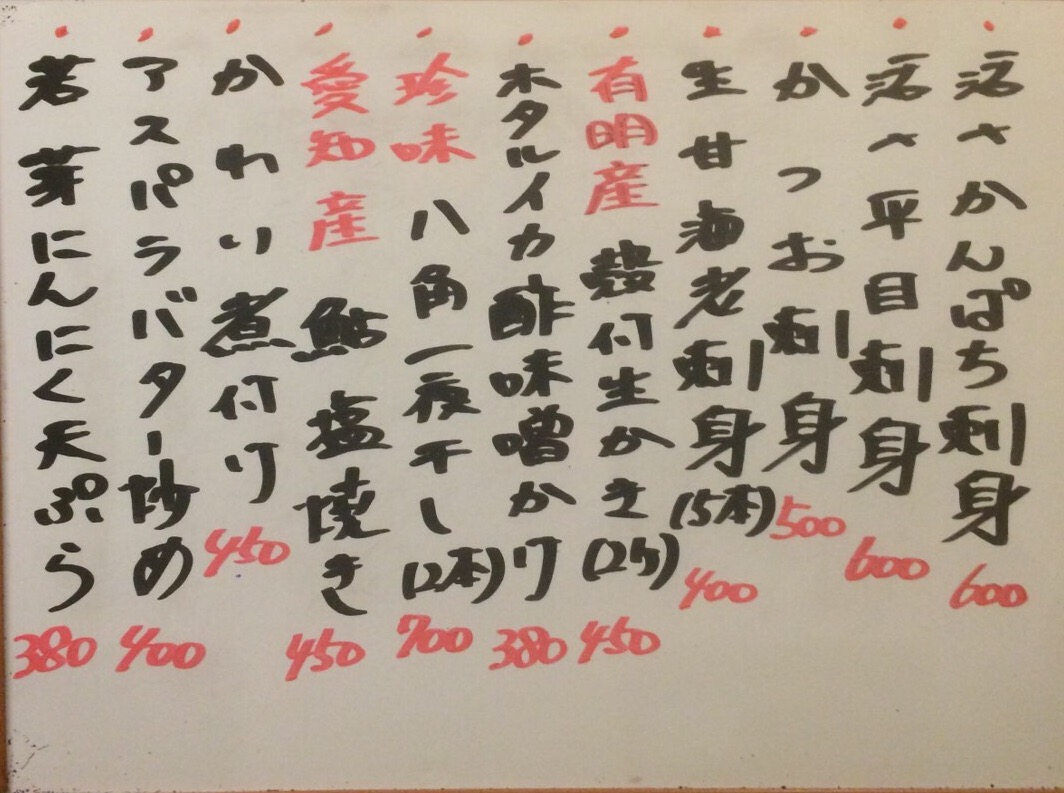 活〆かんぱち刺身 600
活〆平目刺身 600
かつお刺身 500
生甘海老刺身(5本) 400
有明産 殻付生かき(2ケ) 450
ホタルイカ酢味噌かけ 380
珍味 八角一夜干し(2本) 700
愛知産 鮎塩焼き 450
かれい煮付け 450
アスパラバター炒め 400
若芽にんにく天ぷら 380